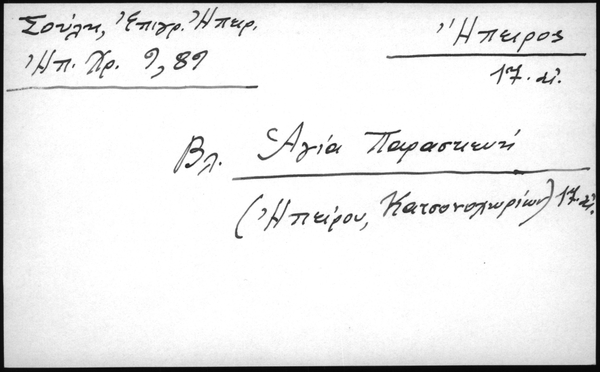 Σούλη, Ἐπιγρ. Ἠπειρ.
Ἠπ. Χρ. 9, 89
Ἤπειρος
17. αἰ.
Βλ. Ἁγία Παρασκευή
(Ἠπείρου, Κατσανοχωρίων) 17. αἰ.